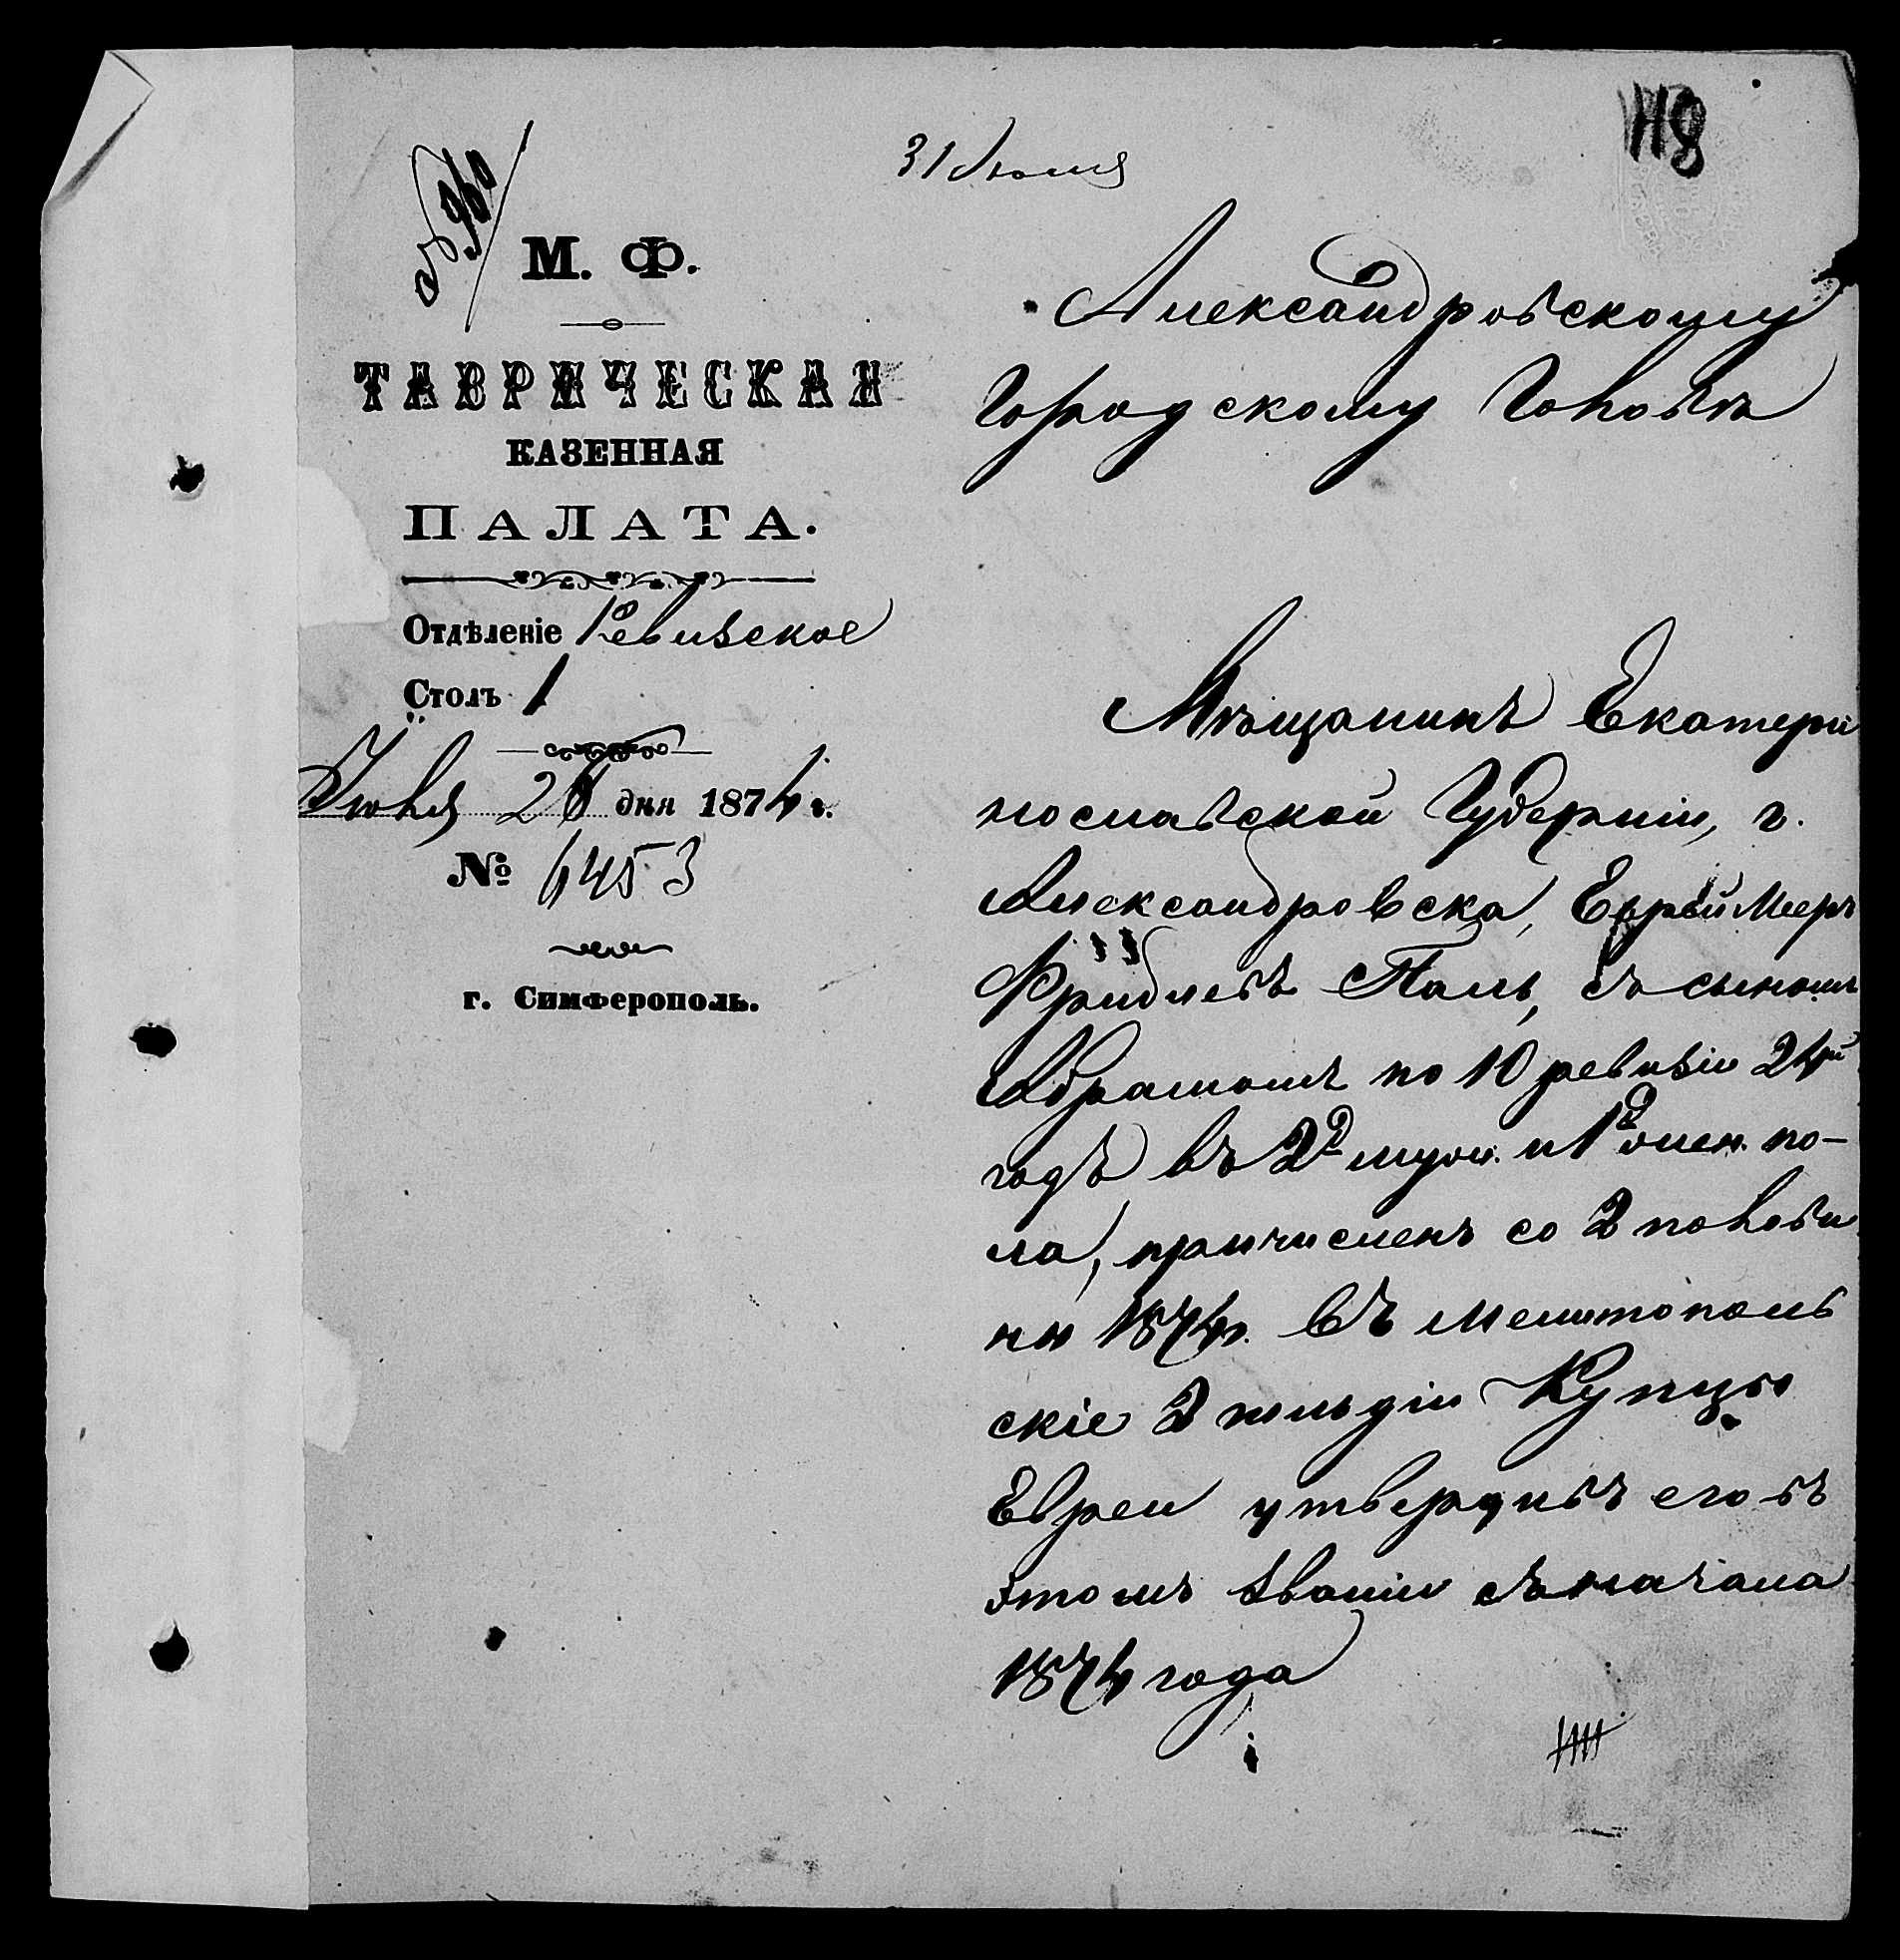 118
31 Июля
№ 960
М. Ф.
ТАВРИЧЕСКАЯ
КАЗЕННАЯ
ПАЛАТА.
Отдѣленіе Ревизское
Столъ 1
Июля 26 дня 1874 г.
№ 6453
г. Симферополь.
Александровскому
Городскому Головѣ
Мѣщанинъ Екатери
нославской Губерніи, г.
Александровска, Еврей Мееръ
Фридлевъ Паль, съ сыномъ
Абрамомъ по 10 ревизіи 24й
годъ въ 2д муж. и 1д жен. по-
ла, причисленъ со 2 полови
ны 1874г. въ Мелитополь
скіе 2 гильдіи Купцы
Евреи утвердивъ его въ
этомъ званіи съ начала
1874 года